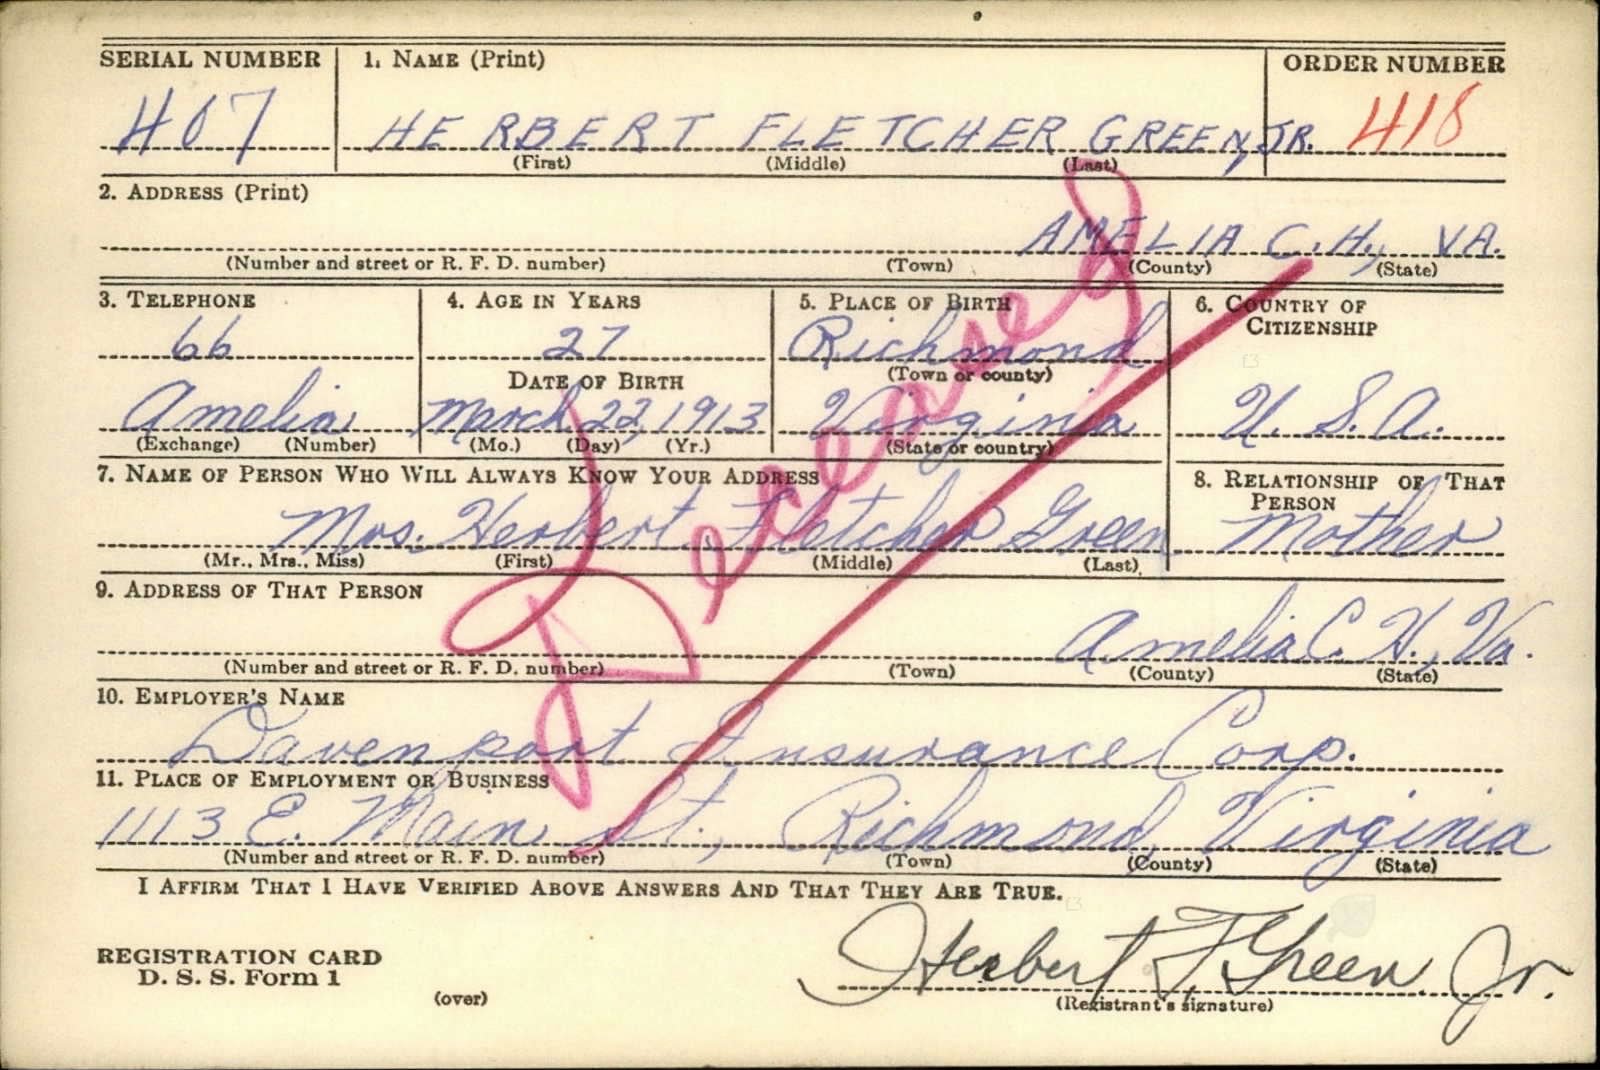 SERIAL NUMBER 1. NAME (Print) ORDER NUMBER
407 HERBERT FLETCHER GREEN, JR. 418
(First) (Middle) (Last)
2. ADDRESS (Print)
AMELIA C.H., VA.
(Number and street or R. F. D. number) (Town) (County) (State)
3. TELEPHONE 4. AGE IN YEARS 5. PLACE OF BIRTH 6. COUNTRY OF
CITIZENSHIP
66 27 Richmond
DATE OF BIRTH (Town or county)
Amelia March 22, 1913 Virginia U. S. A.
(Exchange) (Number) (Mo.) (Day) (Yr.) (State or country)
7. NAME OF PERSON WHO WILL ALWAYS KNOW YOUR ADDRESS 8. RELATIONSHIP OF THAT
PERSON
Mrs. Herbert Fletcher Green Mother
(Mr., Mrs., Miss) (First) (Middle) (Last)
9. ADDRESS OF THAT PERSON
Amelia C. H., Va.
(Number and street or R. F. D. number) (Town) (County) (State)
10. EMPLOYER'S NAME
Davenport Insurance Corp.
11. PLACE OF EMPLOYMENT OR BUSINESS
1113 E. Main St., Richmond, Virginia
(Number and street or R. F. D. number) (Town) (County) (State)
I AFFIRM THAT I HAVE VERIFIED ABOVE ANSWERS AND THAT THEY ARE TRUE.
Deceased
REGISTRATION CARD
D. S. S. Form 1
(over)
Herbert F. Green Jr.
(Registrant's signature)